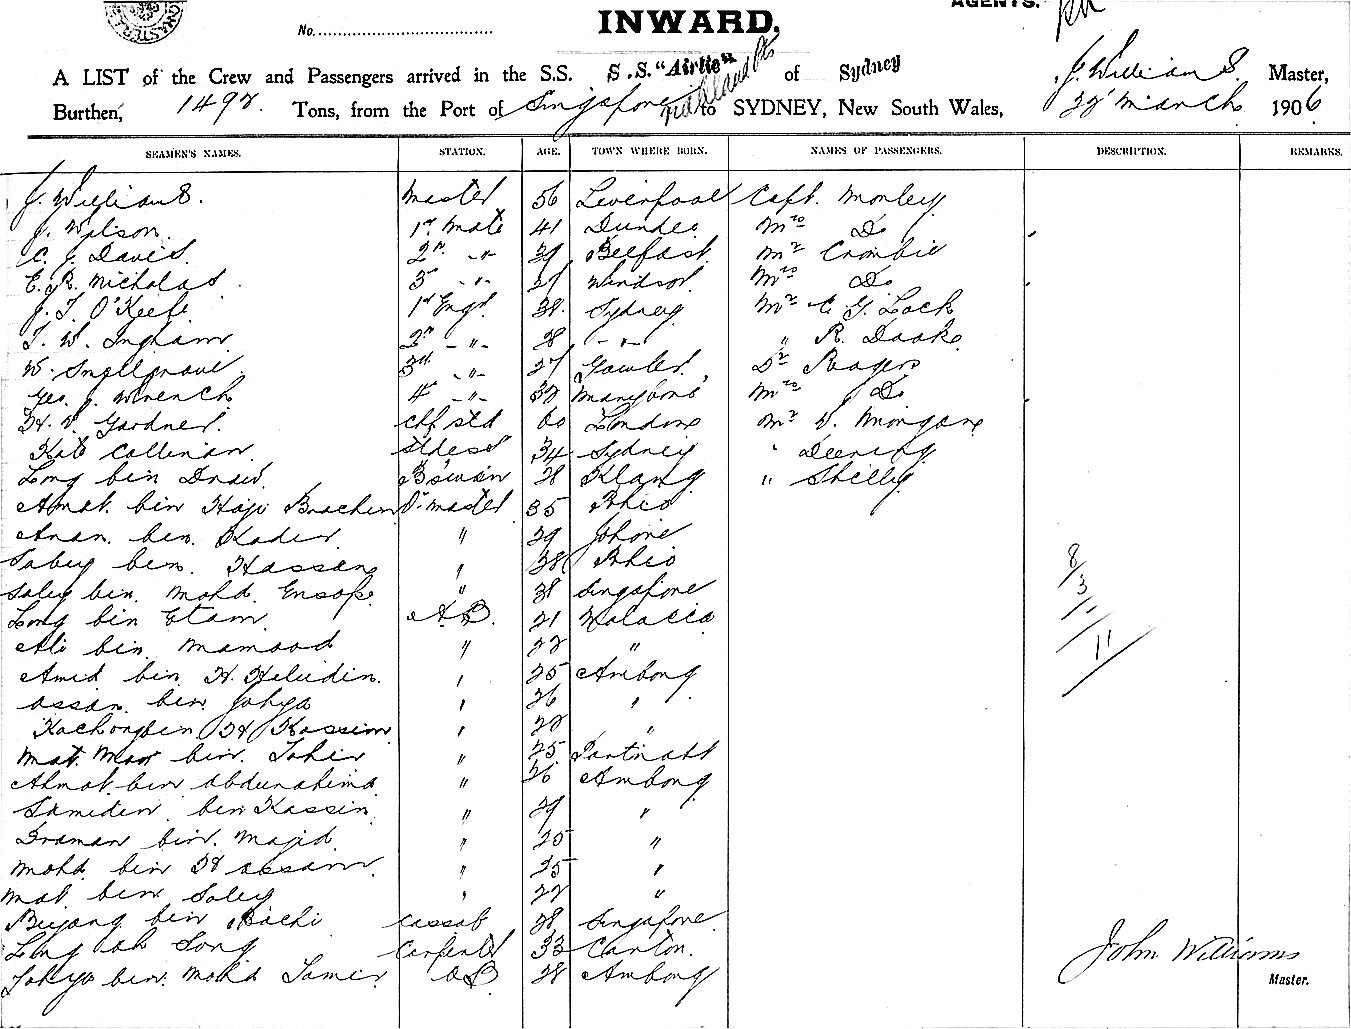 AGENTS.
No.
INWARD.
A LIST of the Crew and Passengers arrived in the S.S. S.S. "Airlie" of Sydney J. Williams. Master,
Burthen, 1492. Tons, from the Port of Singapore to SYDNEY, New South Wales, 22' March 1906
SEAMEN'S NAMES. STATION. AGE. TOWN WHERE BORN. NAMES OF PASSENGERS. DESCRIPTION. REMARKS.
J. Williams. Master 56 Liverpool Capt. Morley
J. Wilson. 1st Mate 41 Dundee Mrs Do
C. J. Davis. 2nd -"- 39 Belfast Mr Crombie
E. R. Nicholas 3rd -"- 27 Windsor Mrs Do
J. J. O'Keefe 1st Engr 38. Sydney Mr C G. Lock
J. W. Ingham 2nd -"- 28 -"- " R.
W. 3rd -"- 27 Gawler Dr Rogers
Geo. J. Wrench 4 -"- 32 Mrs Do
H. V. Gardner. chf std 60 London Mr W.
Kate Callinan. stdess 34 Sydney "
Long bin Draw. Boswin 28 Klang " Shelley
Amat. bin Haji Q. master 35 Rhio
bin Kader " 29 Johore
Saley bin Hassan " 38 Rhio
Saley bin. Mohd. " 38 Singapore
Long bin Etam A.B. 21 Malacca
Ali bin Mamood " 22 "
Amid bin H. " 25 Ambong
assan. bin Johya " 26 "
Kachong bin H Kassim " 22 "
Mat. bin. Tahir " 25
Ahmat bin abdurahima " 26 Ambong
bin Kassim " 29 "
Draman bin. Majid " 25 "
Mohd bin H assam " 25 "
Mat bin Saley " 22 "
bin cassab 28 Singapore
Long ah Song Carpenter 33 Canton.
bin Mohd AB 28 Ambong
8
3
11
John Williams
Master.